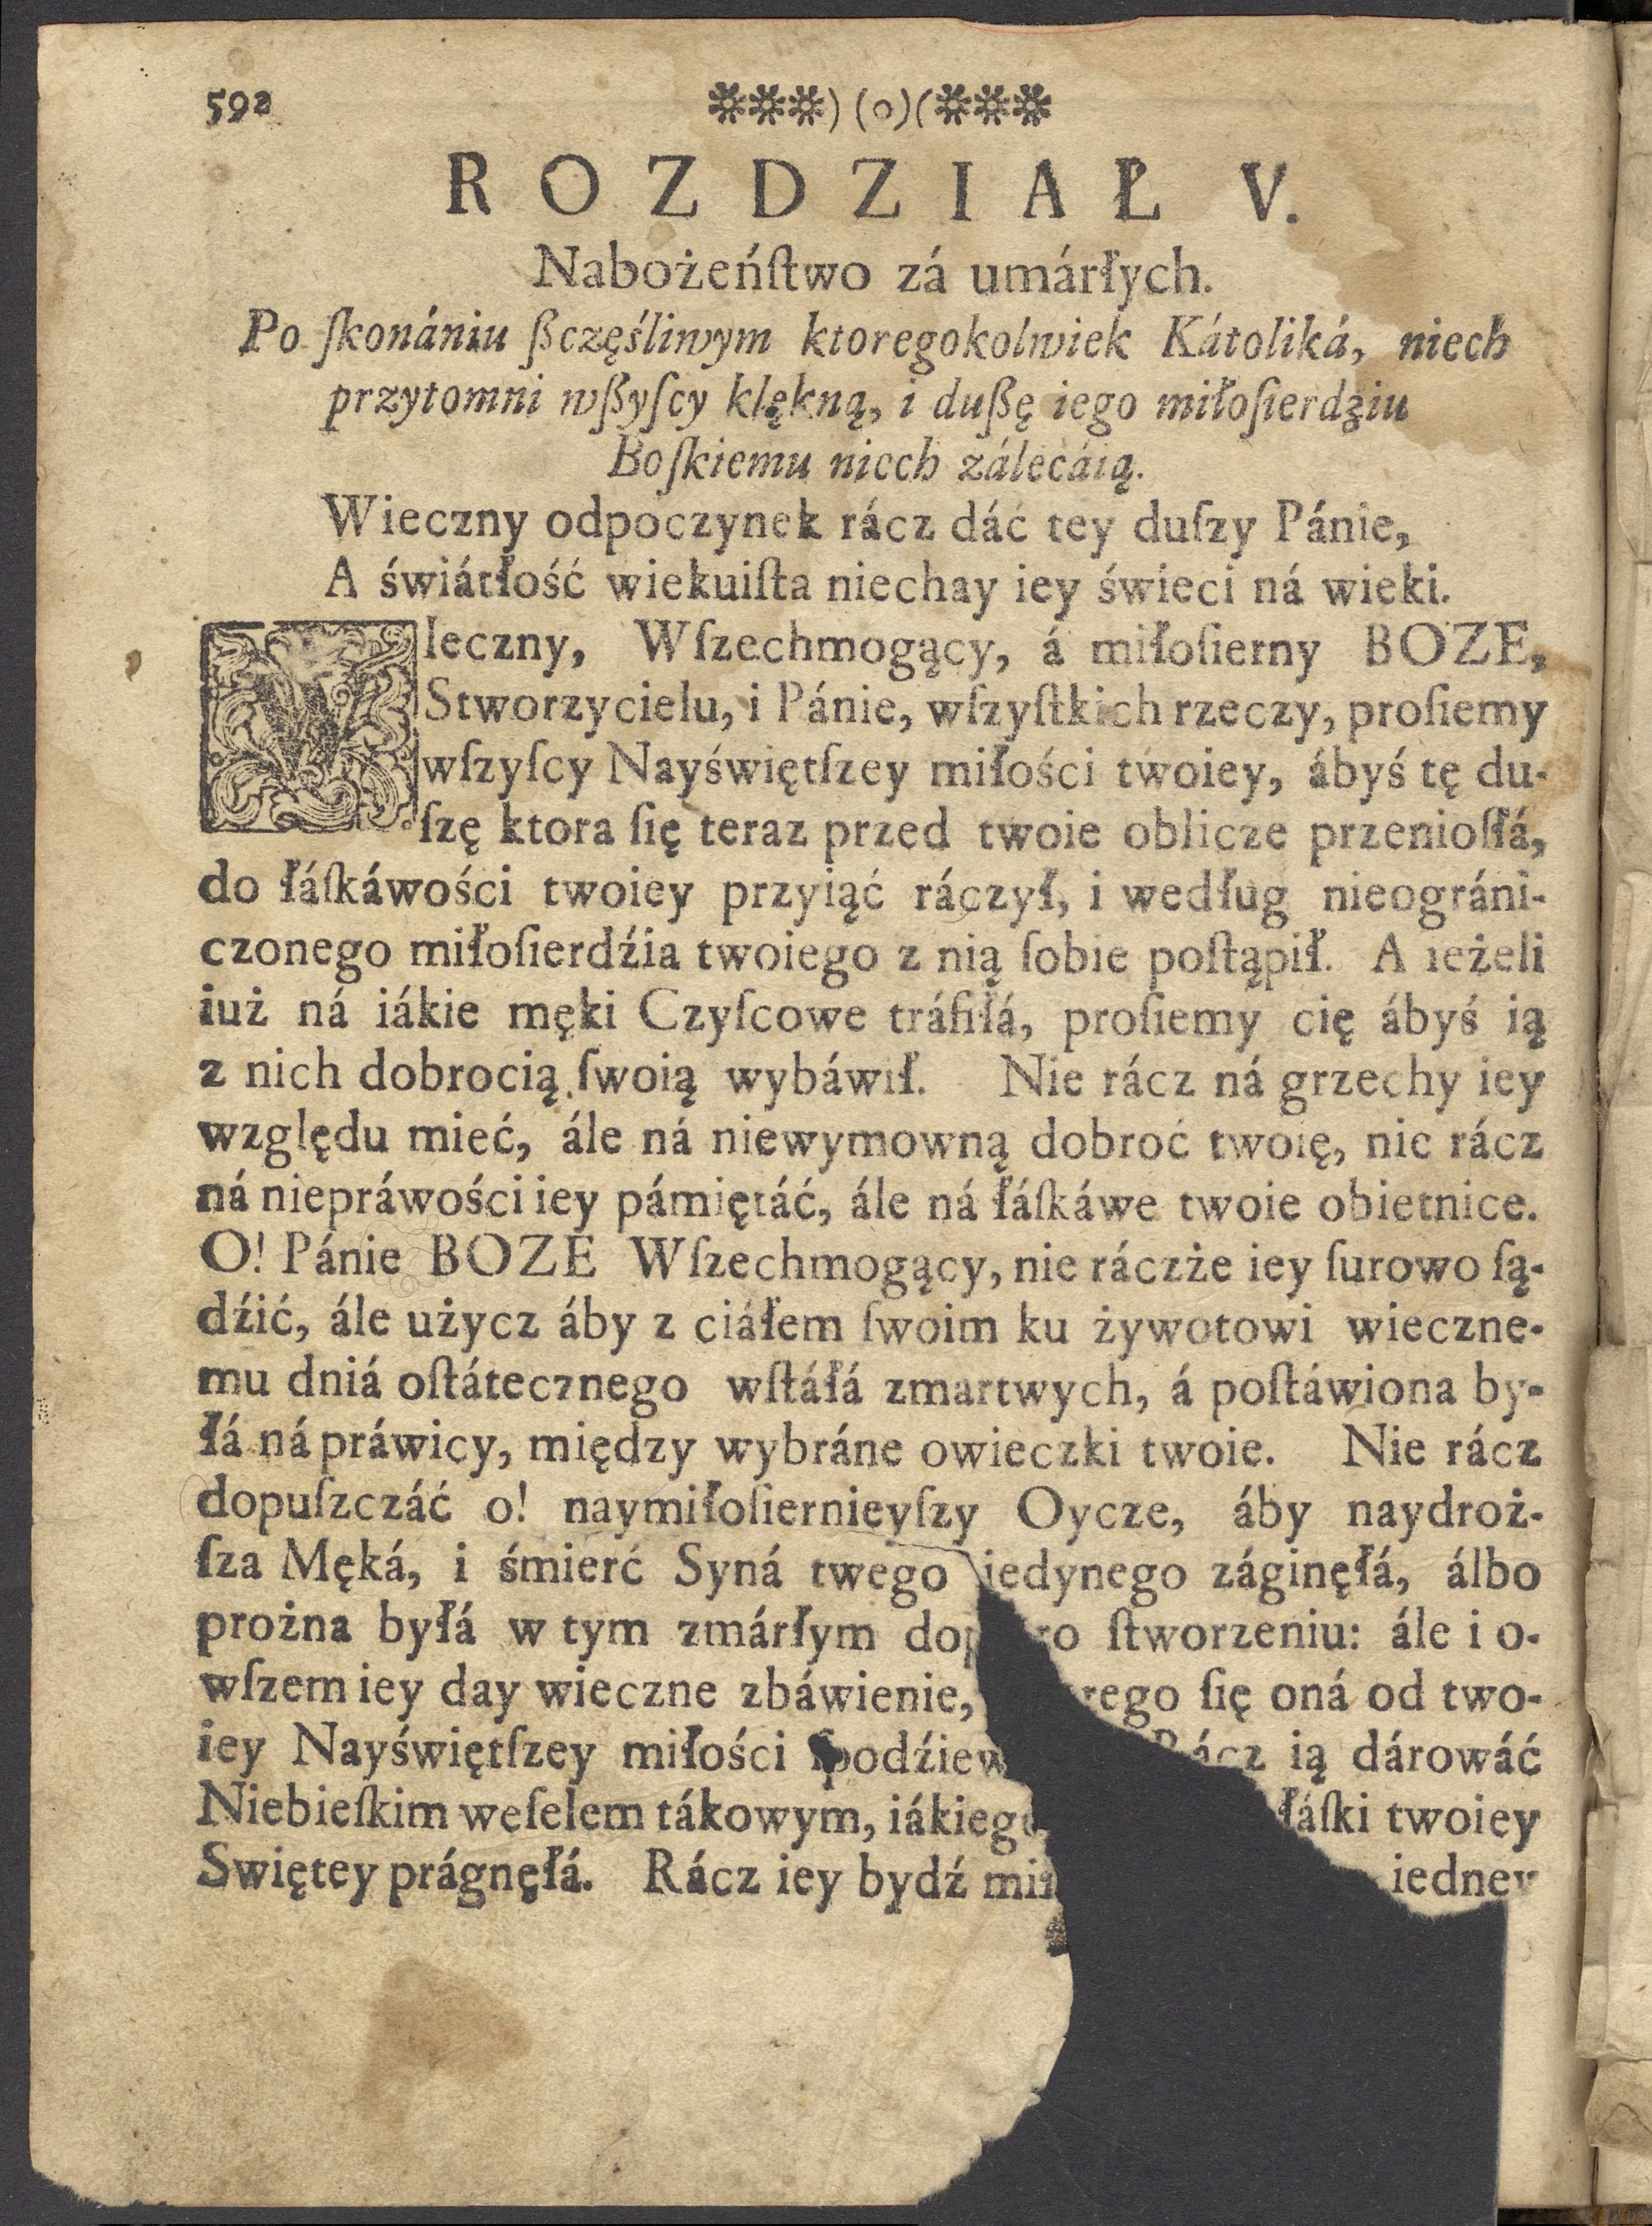 592 ***)(o)(***
ROZDZIAŁ V.
Nabożeńſtwo zá umárłych.
Po ſkonániu ßczęśliwym ktoregokolwiek Kátoliká, niech
przytomni wßyſcy klękną, i dußę iego miłoſierdziu
Boſkiemu niech zálecáią.
Wieczny odpoczynek rácz dáć tey duſzy Pánie,
A świátłość wiekuiſta niechay iey świeci ná wieki.
WIeczny, Wſzechmogący, á miłoſierny BOZE,
Stworzycielu, i Pánie, wſzyſtkich rzeczy, proſiemy
wſzyſcy Nayświętſzey miłości twoiey, ábyś tę du-
ſzę ktora ſię teraz przed twoie oblicze przenioſłá,
do łáſkáwości twoiey przyiąć ráczył, i według nieográni-
czonego miłoſierdźia twoiego z nią ſobie poſtąpił. A ieżeli
iuż ná iákie męki Czyſcowe tráfiłá, proſiemy cię ábyś ią
z nich dobrocią ſwoią wybáwił. Nie rácz ná grzechy iey
względu mieć, ále ná niewymowną dobroć twoię, nie rácz
ná niepráwości iey pámiętáć, ále ná łáſkáwe twoie obietnice.
O! Pánie BOZE Wſzechmogący, nie ráczże iey ſurowo ſą-
dźić, ále użycz áby z ciáłem ſwoim ku żywotowi wieczne-
mu dniá oſtátecznego wſtáłá zmartwych, á poſtáwiona by-
łá ná práwicy, między wybráne owieczki twoie. Nie rácz
dopuſzczáć o! naymiłoſiernieyſzy Oycze, áby naydroż-
ſza Męká, i śmierć Syná twego iedynego záginęłá, álbo
prożna byłá w tym zmárłym ſtworzeniu: ále i o-
wſzem iey day wieczne zbáwienie, ſię oná od two-
iey Nayświętſzey miłości Rácz ią dárowáć
Niebieſkim weſelem tákowym, łáſki twoiey
Swiętey prágnęłá. Rácz iey bydź iedney